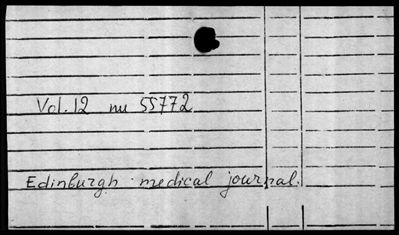 Vol. 12 nu 55772
Edinburgh medical journal.